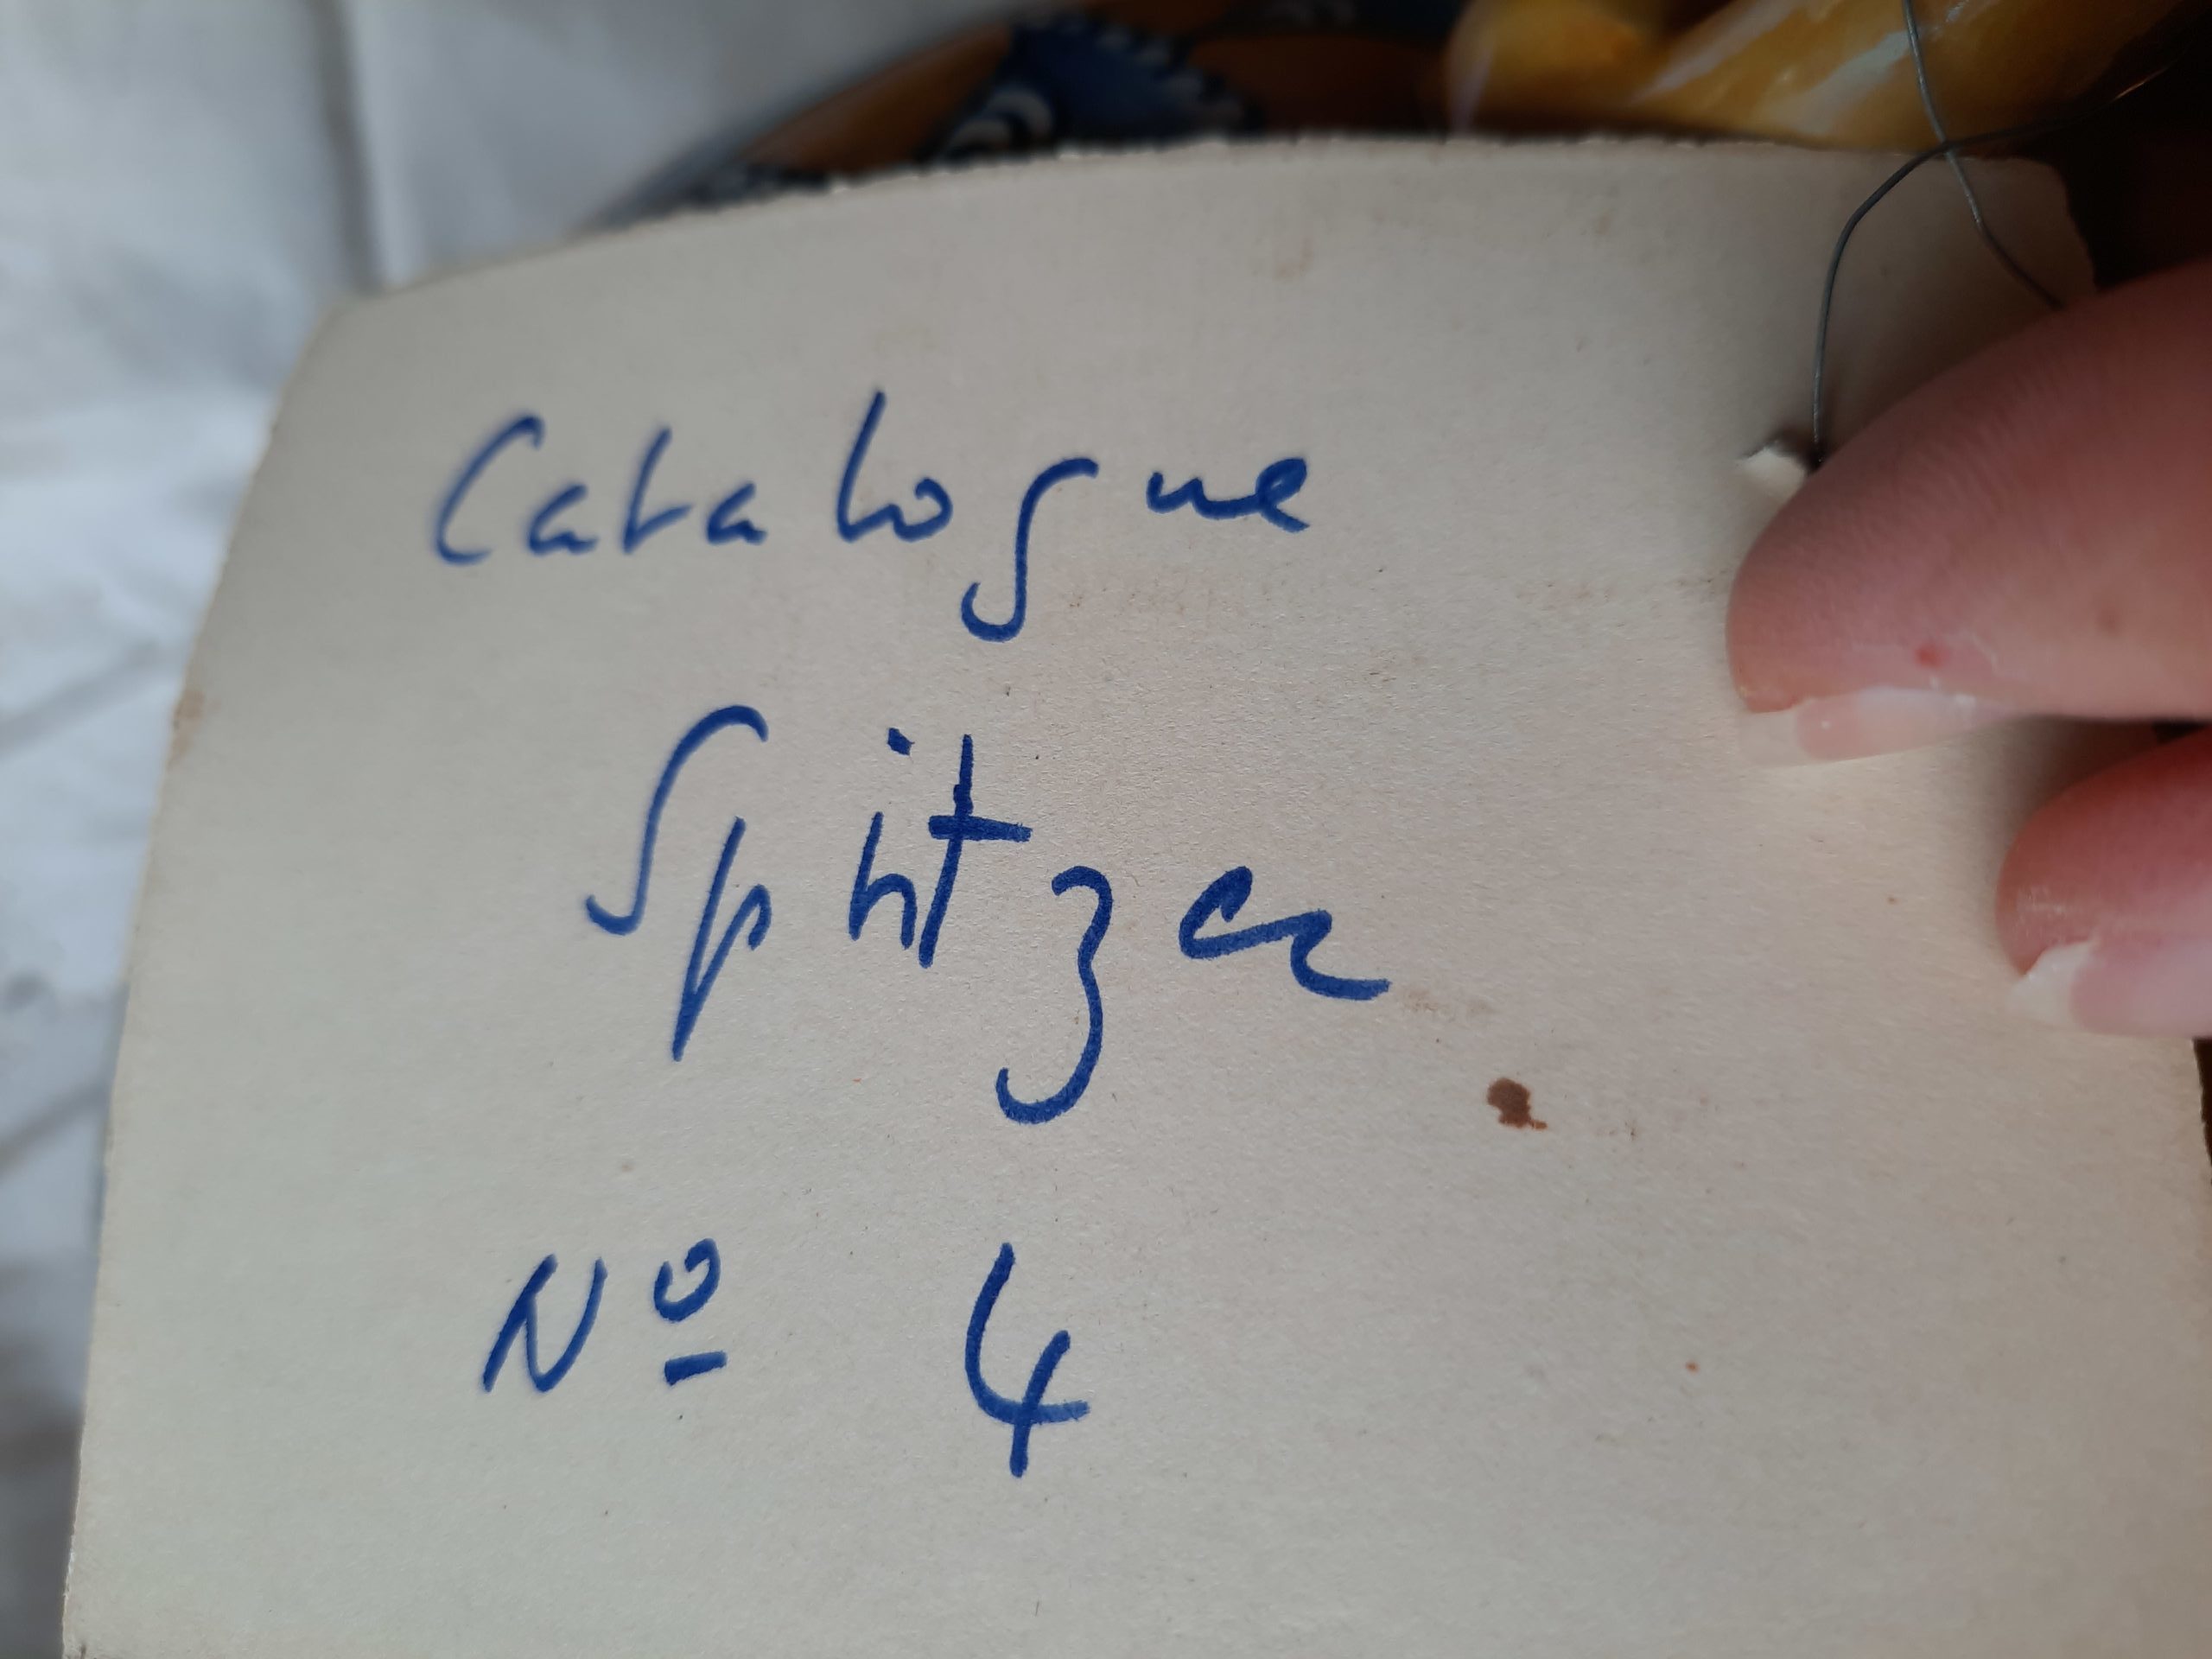 Catalogue
Spitzer
Nº 4